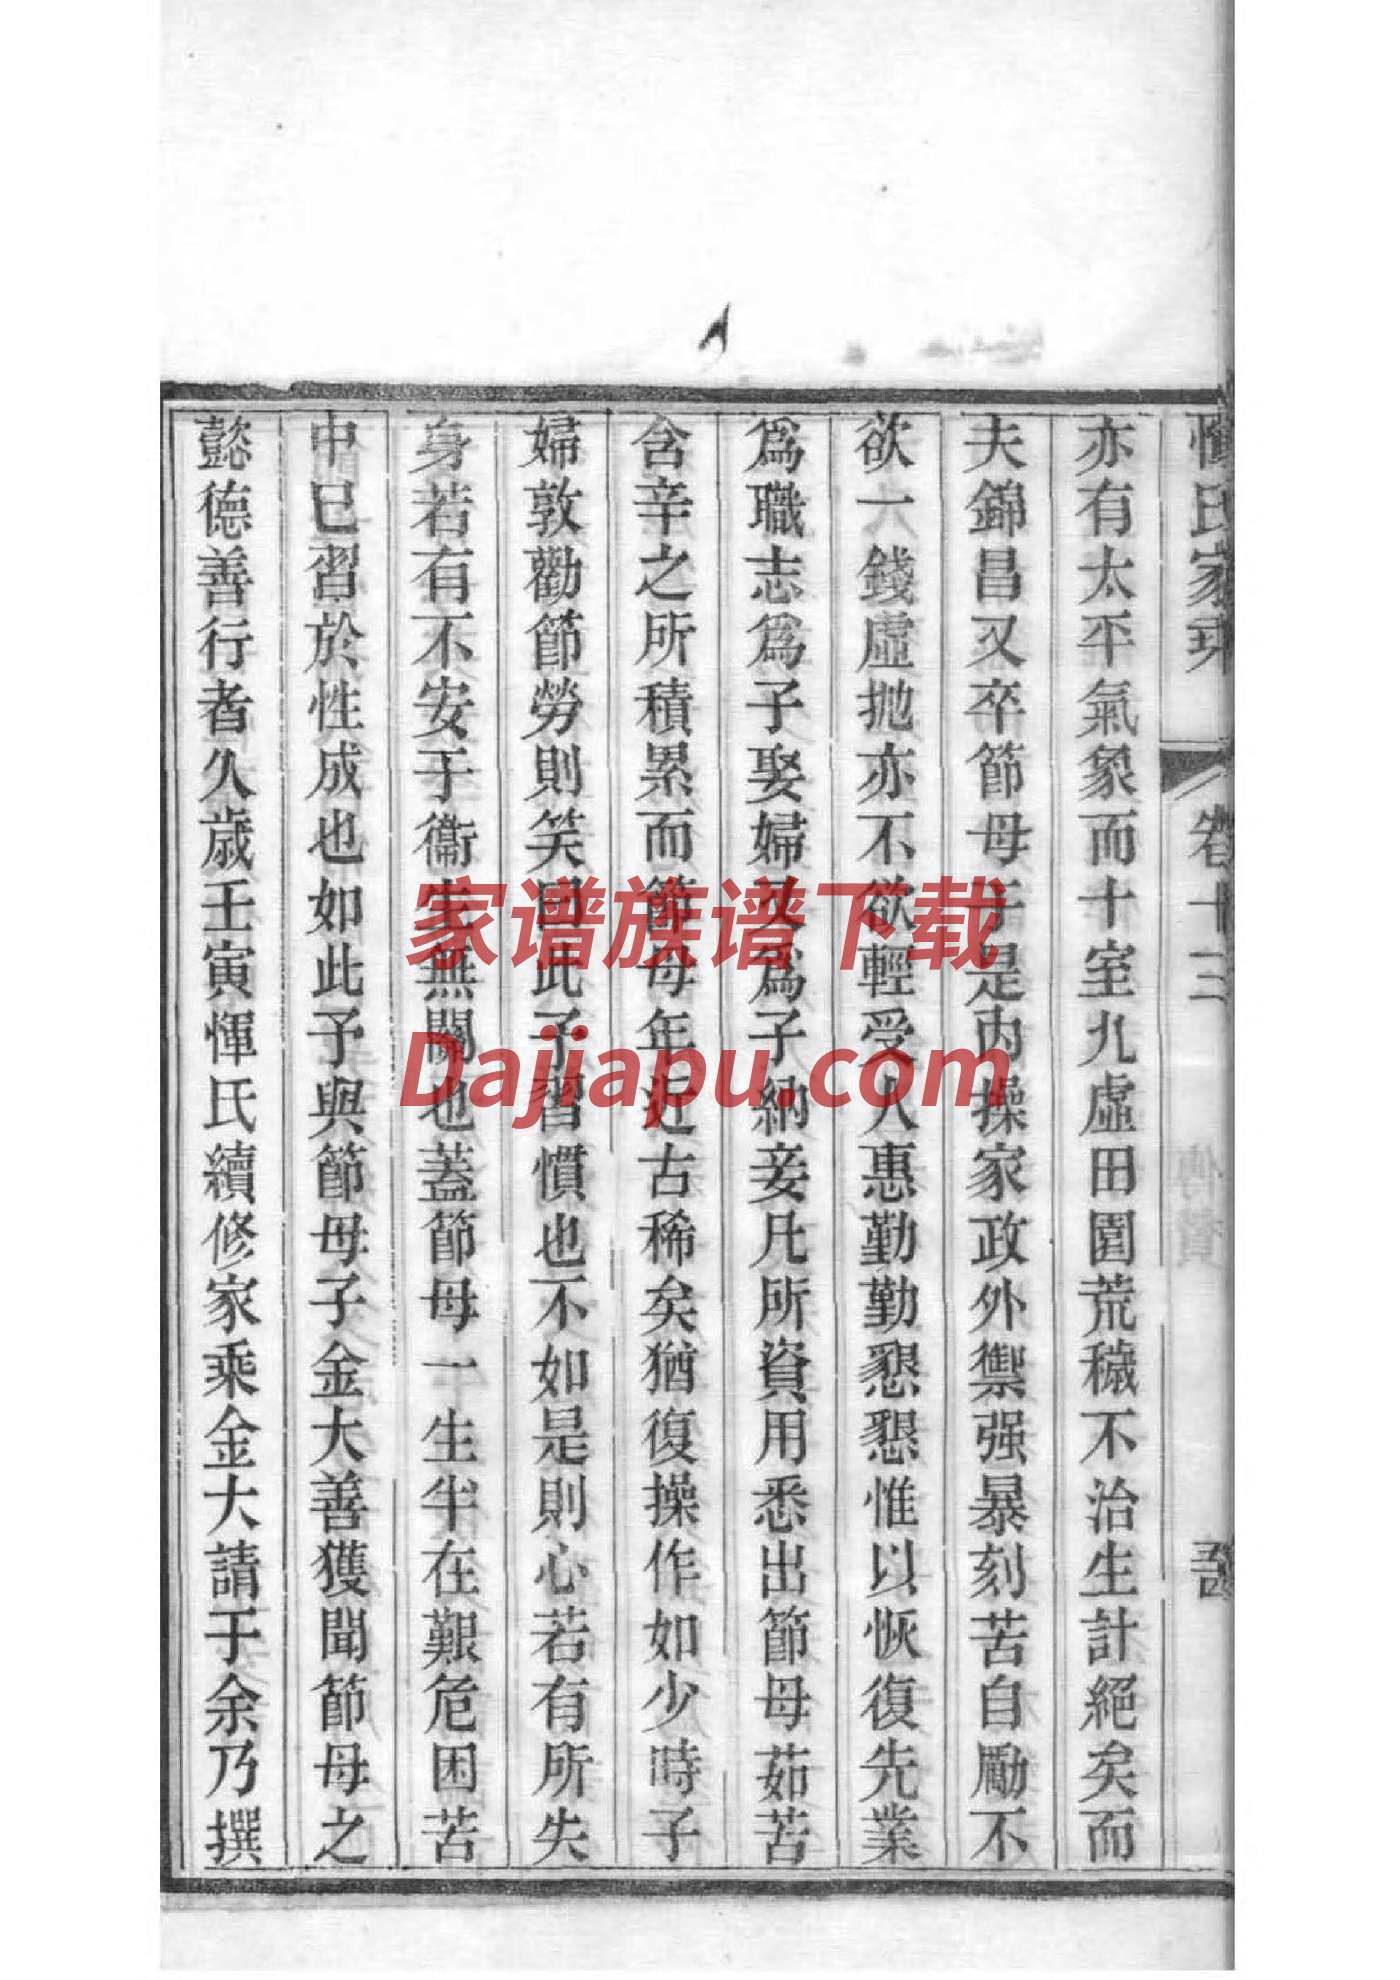 惲氏家乘 卷十三
亦有太平氣象而十室九虛田園荒穢不治生計絕矣而
夫錦昌又卒節母于是內操家政外禦强暴刻苦自勵不
欲一錢虛拋亦不欲輕受人惠勤勤懇懇惟以恢復先業
爲職志爲子娶婦又爲子納妾凡所資用悉出節母茹苦
含辛之所積累而節母年近古稀矣猶復操作如少時子
婦敦勸節勞則笑曰此予習慣也不如是則心若有所失
身若有不安于衞生無關也蓋節母一生半在艱危困苦
中已習於性成也如此予與節母子金大善獲聞節母之
懿德善行者久歲壬寅惲氏續修家乘金大請于余乃撰
家谱族谱下载
Dajiapu.com